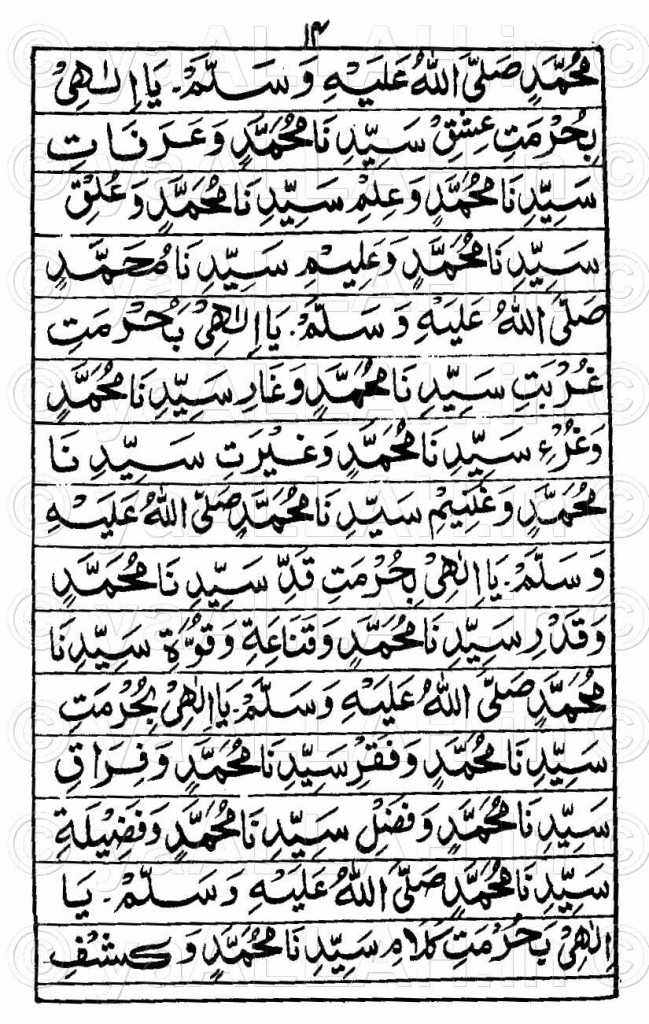 ١٤
مُحَمَّدٍ صَلَّى اللهُ عَلَيْهِ وَسَلَّمْ۔ يَا اِلٰهِىْ
بِحُرْمَتِ عِشْقِ سَيِّدِنَا مُحَمَّدٍ وَعَرَفَاتِ
سَيِّدِنَا مُحَمَّدٍ وَعِلْمِ سَيِّدِنَا مُحَمَّدٍ وَعُلِقْ
سَيِّدِنَا مُحَمَّدٍ وَعَلِيْمِ سَيِّدِنَا مُحَمَّدٍ
صَلَّى اللهُ عَلَيْهِ وَسَلَّمْ۔ يَا اِلٰهِىْ بَحُرْمَتِ
غُرْبَتِ سَيِّدِنَا مُحَمَّدٍ وَغَارِ سَيِّدِنَا مُحَمَّدٍ
وَغُرْءِ سَيِّدِنَا مُحَمَّدٍ وَغَيْرَتِ سَيِّدِنَا
مُحَمَّدٍ وَغَنِيْمِ سَيِّدِنَا مُحَمَّدٍ صَلَّى اللهُ عَلَيْهِ
وَسَلَّمْ۔ يَا اِلٰهِىْ بِحُرْمَتِ قَدِّ سَيِّدِنَا مُحَمَّدٍ
وَقَدْرِ سَيِّدِنَا مُحَمَّدٍ وَقَنَاعَةِ وَقُوَّةِ سَيِّدِنَا
مُحَمَّدٍ صَلَّى اللهُ عَلَيْهِ وَسَلَّمْ۔ يَا اِلٰهِىْ بِحُرْمَتِ
سَيِّدِنَا مُحَمَّدٍ وَفَقْرِ سَيِّدِنَا مُحَمَّدٍ وَفِرَاقِ
سَيِّدِنَا مُحَمَّدٍ وَفَضْلِ سَيِّدِنَا مُحَمَّدٍ وَفَضِيْلَةِ
سَيِّدِنَا مُحَمَّدٍ صَلَّى اللهُ عَلَيْهِ وَسَلَّمْ۔ يَا
اِلٰهِىْ بَحُرْمَتِ كَلَامِ سَيِّدِنَا مُحَمَّدٍ وَكَشْفِ